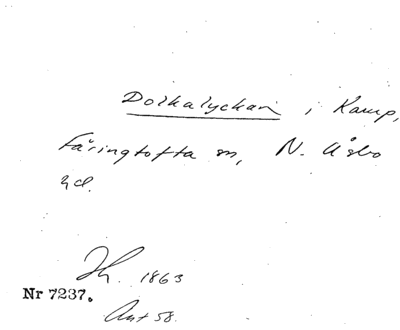 Dolkalyckan i Kamp,
Fåringtofta sn, N. Åsbo
hd.
1863
Nr 7237.
Ant 58.